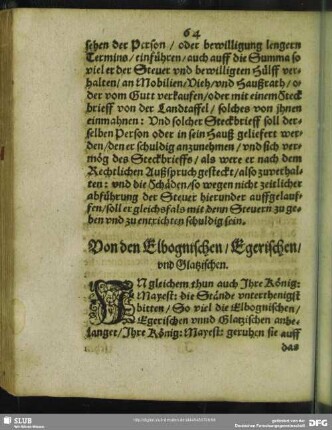 64
sehen der Person / oder bewilligung lengern
Termins / einführen / auch auff die Summa so
viel er der Steuer vnd bewilligten Hülff ver-
halten / an Mobilien / Vieh / vnd Haußrath / o-
der vom Gutt verkaufen / oder mit einem Steck
brieff von der Landtaffel / solches von ihnen
einmahnen: Vnd solcher Steckbrieff soll der-
selben Person oder in sein Hauß geliefert wer-
den / den er schuldig anzunehmen / vnd sich ver-
mög des Steckbrieffs / als were er nach dem
Rechtlichen Außspruch gesteckt / also zuverhal-
ten: vnd die Schäden / so wegen nicht zeitlicher
abführung der Steuer hierunder auffgelauf-
fen / soll er gleichsfals mit denn Steuern zu ge-
ben vnd zu entrichten schuldig sein.
Von den Elbognischen / Egerischen /
vnd Glatzischen.
IN gleichem thun auch Ihre König:
Mayest: die Stände vnterthenigst
bitten / So viel die Elbognischen /
Egerischen vnnd Glatzischen anbe-
langet / Ihre König: Mayest: geruhen sie auff
das
SLUB
Wir führen Wissen.
DFG
gefördert von der
Deutschen Forschungsgemeinschaft